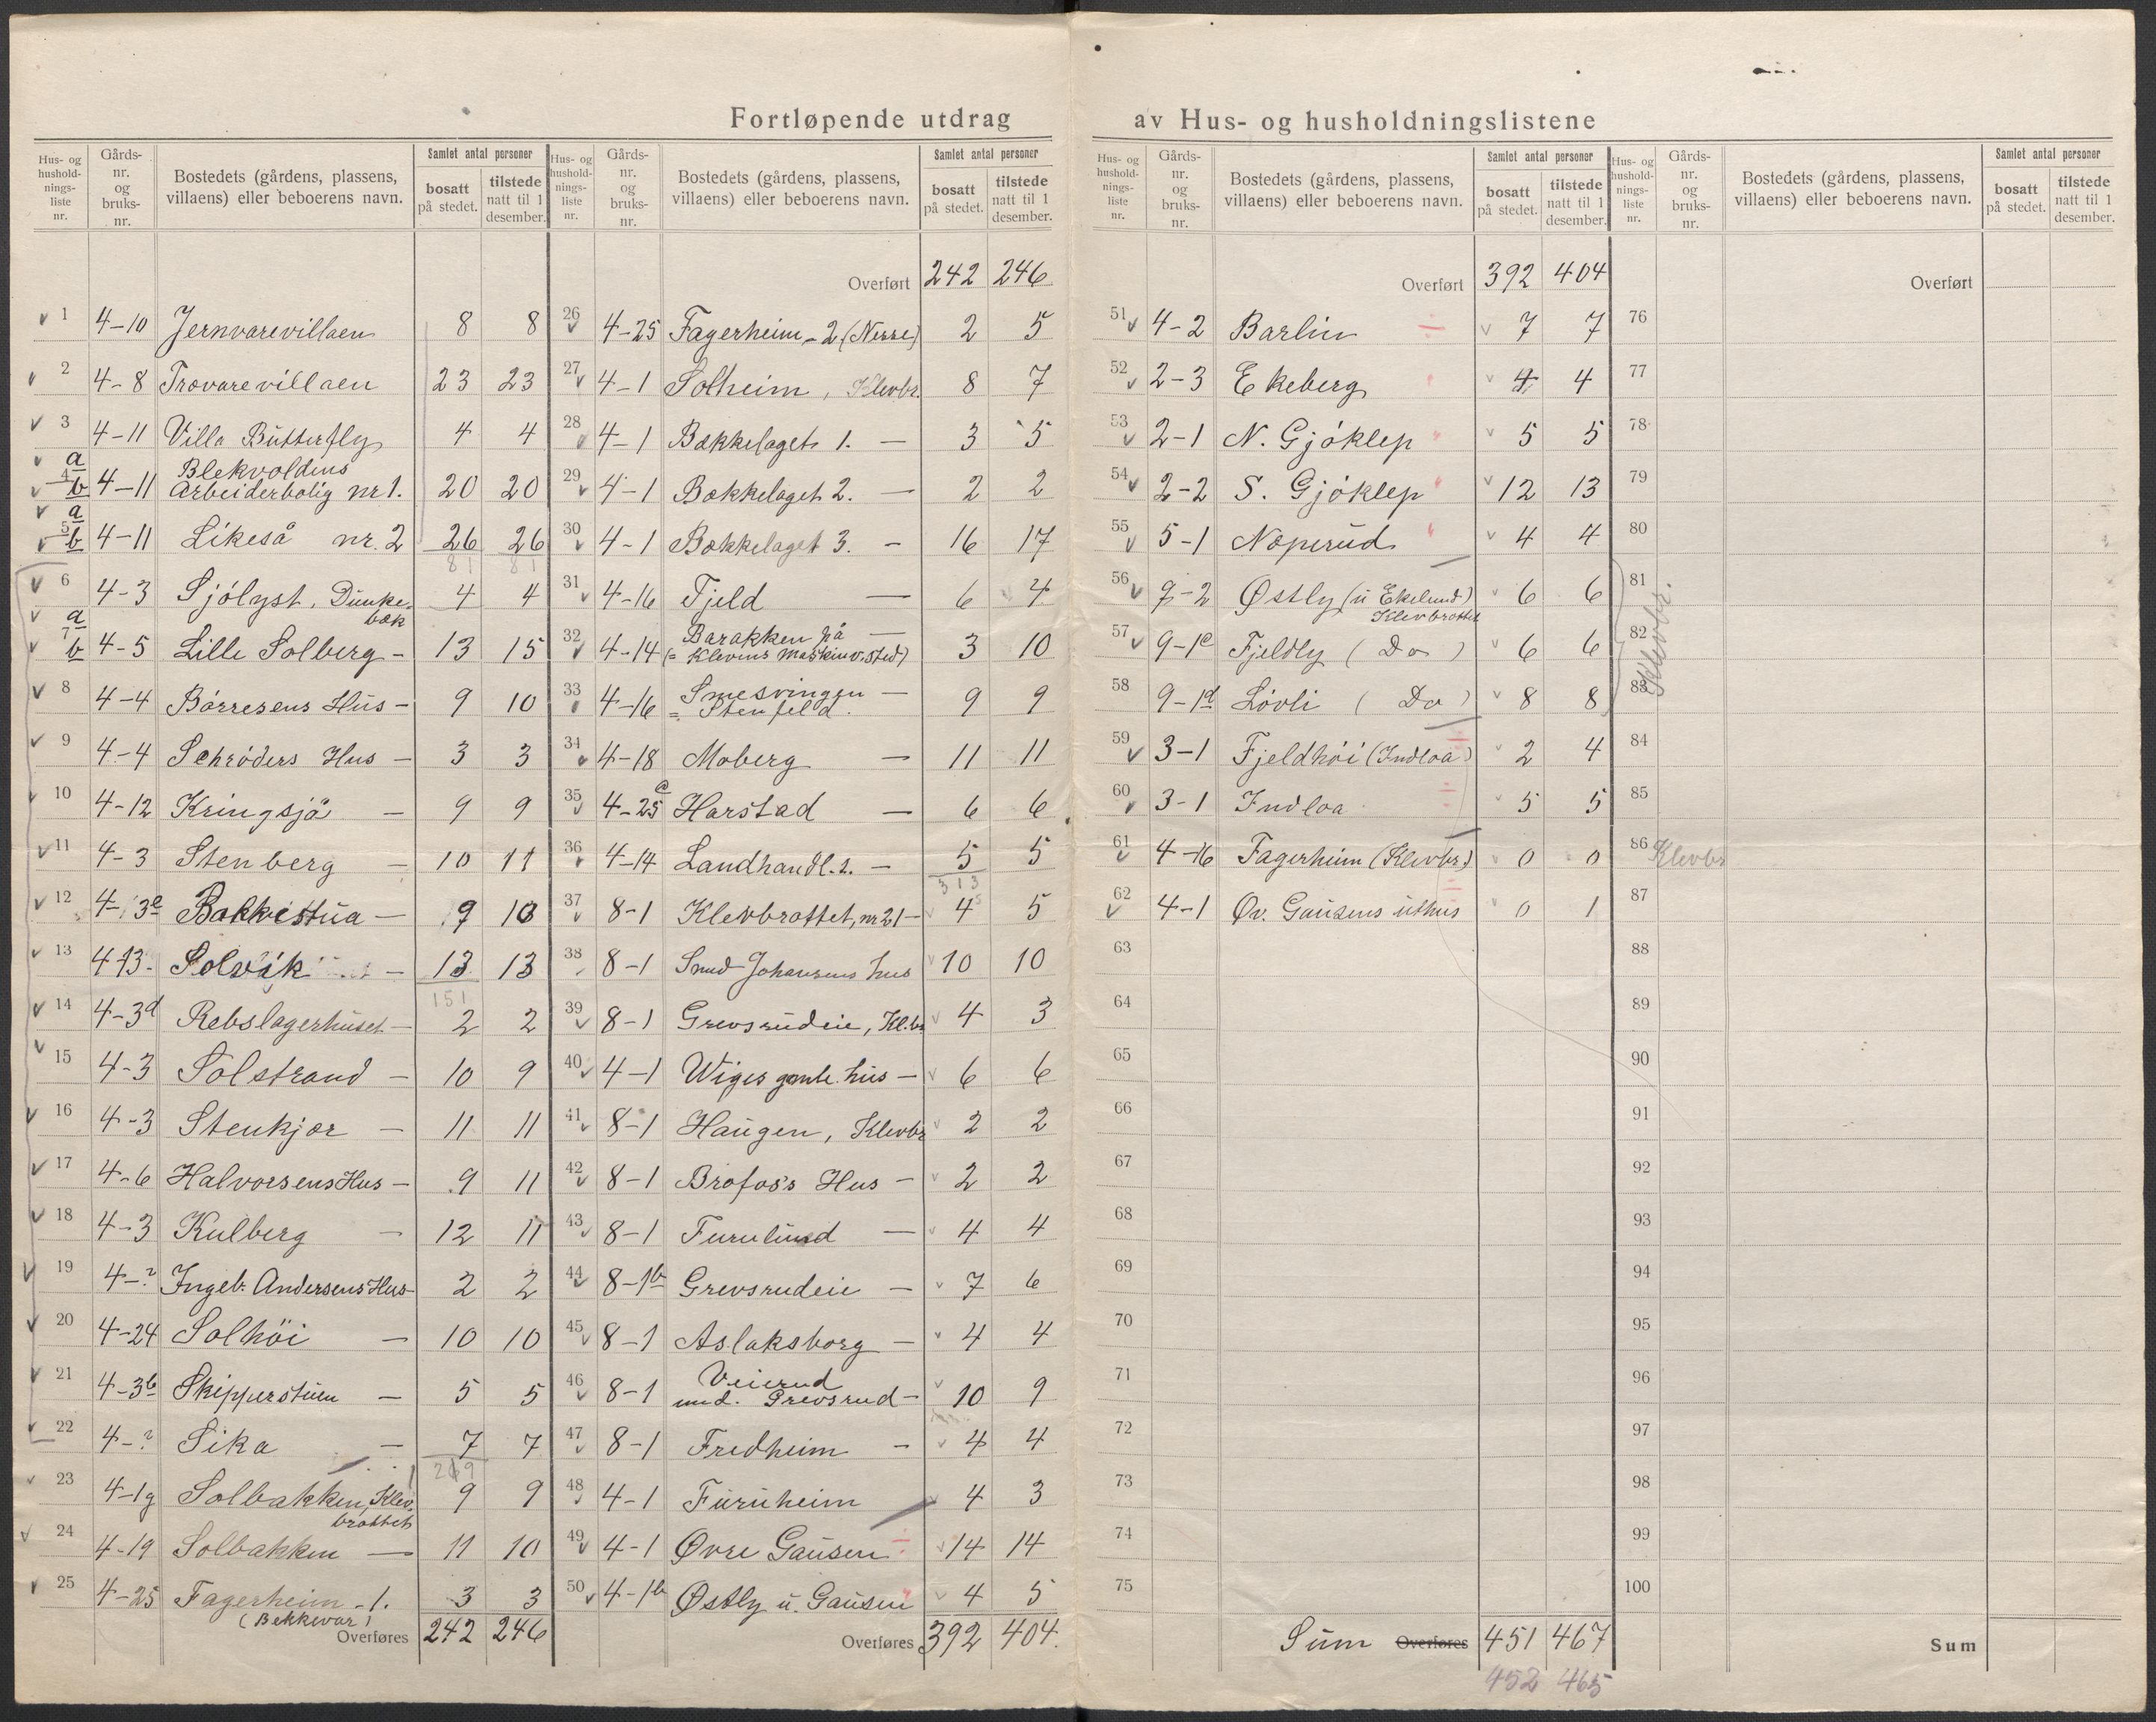 Fortløpende utdrag av Hus- og husholdningslistene
Hus- og husholdnings-liste nr. | Gårds-nr. og bruks-nr. | Bostedets (gårdens, plassens, villaens) eller beboerens navn. | Samlet antal personer | bosatt på stedet. | tilstede natt til 1 desember.
1 4-10 Jernvarevillaen 8 8
2 4-8 Trævarevillaen 23 23
3 4-11 Villa Butterfly 4 4
4 a b 4-11 Blekvoldens Arbeiderbolig nr 1. 20 20
5 a b 4-11 Likeså nr. 2 26 26
81 81
6 4-3 Sjölyst, Dunkebæk 4 4
7 a b 4-5 Lille Solberg - 13 15
8 4-4 Börresens Hus - 9 10
9 4-4 Schröders Hus - 3 3
10 4-12 Kringsjå - 9 9
11 4-3 Stenberg - 10 11
12 4-3e Bakkestua - 9 10
13 4-13 Solvik - 13 13
151
14 4-3d Rebslagerhuset - 2 2
15 4-3 Solstrand - 10 9
16 4-3 Stenkjær - 11 11
17 4-6 Halvorsens Hus - 9 11
18 4-3 Kulberg - 12 11
19 4-? Ingeb. Andersens Hus - 2 2
20 4-24 Solhöi - 10 10
21 4-3b Skipperstuen - 5 5
22 4-? Sika - 7 7
219
23 4-1g Solbakken, Klevbrottet 9 9
24 4-19 Solbakken - 11 10
25 4-25 Fagerheim - 1. (Bekkevar) 3 3
Overføres 242 246
Hus- og husholdnings-liste nr. | Gårds-nr. og bruks-nr. | Bostedets (gårdens, plassens, villaens) eller beboerens navn. | Samlet antal personer | bosatt på stedet. | tilstede natt til 1 desember.
Overført 242 246
26 4-25 Fagerheim - 2 (Nesse) 2 5
27 4-1 Solheim, Klevbr. 8 7
28 4-1 Bækkelaget 1. - 3 5
29 4-1 Bækkelaget 2. - 2 2
30 4-1 Bækkelaget 3. - 16 17
31 4-16 Fjeld - 6 4
32 4-14 Barakken på - (= Klevens maskinv.sted) 3 10
33 4-16 Smesvingen - = Stenfeld. 9 9
34 4-18 Moberg - 11 11
35 4-25 Harstad - 6 6
36 4-14 Landhandl. s. - 5 5
313
37 8-1 Klevbrottet, nr 21 - 4 5
38 8-1 Smed Johansens hus 10 10
39 8-1 Grevsrudeie, Kl.br 4 3
40 4-1 Wiges gamle hus - 6 6
41 8-1 Haugen, Klevbr 2 2
42 8-1 Brofoss Hus - 2 2
43 8-1 Furulund - 4 4
44 8-1b Grevsrudeie - 7 6
45 8-1 Aslaksborg - 4 4
46 8-1 Veierud und. Grevsrud - 10 9
47 8-1 Fredheim - 4 4
48 4-1 Furuheim 4 3
49 4-1 Øvre Gausen 14 14
50 4-1b Østly u. Gausen 4 5
Overføres 392 404.
Hus- og husholdnings-liste nr. | Gårds-nr. og bruks-nr. | Bostedets (gårdens, plassens, villaens) eller beboerens navn. | Samlet antal personer | bosatt på stedet. | tilstede natt til 1 desember.
Overført 392 404
51 4-2 Barlin 7 7
52 2-3 Ekeberg 4 4
53 2-1 N. Gjöklep 5 5
54 2-2 S. Gjöklep 12 13
55 5-1 Noperud 4 4
56 9-2 Østly (u Ekelund) Klevbrottet 6 6
57 9-1e Fjeldly ( Do ) 6 6
58 9-1d Lövli ( Do ) 8 8
59 3-1 Fjeldhöi (Indloa) 2 4
60 3-1 Indloa 5 5
61 4-16 Fagerheim (Klevbr.) 0 0
62 4-1 Øv. Gausens uthus 0 1
63
64
65
66
67
68
69
70
71
72
73
74
75
Sum Overføres 451 467
452 465
Hus- og husholdnings-liste nr. | Gårds-nr. og bruks-nr. | Bostedets (gårdens, plassens, villaens) eller beboerens navn. | Samlet antal personer | bosatt på stedet. | tilstede natt til 1 desember.
Overført
76
77
78
79
80
81
82 Klevbr.
83
84
85
86 Klevbr
87
88
89
90
91
92
93
94
95
96
97
98
99
100
Sum